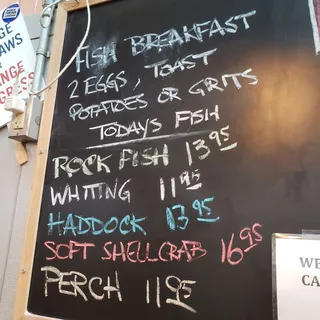 FISH BREAKFAST
2 EGGS, TOAST
POTATOES OR GRITS
TODAYS FISH
ROCK FISH 13.95
WHITING 11.95
HADDOCK 13.95
SOFT SHELL CRAB 16.95
PERCH 11.95
WE
CA